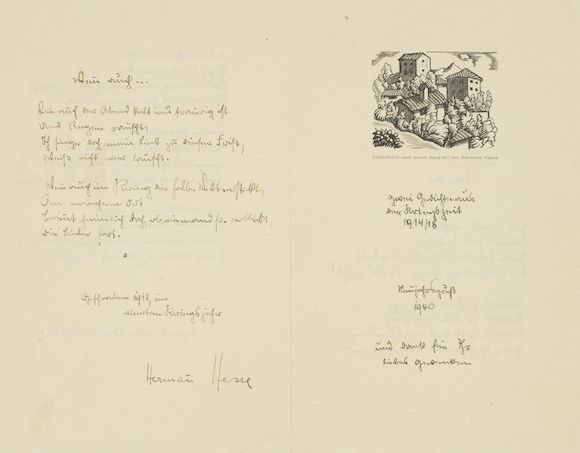 Wenn auch ...
Wenn auch der Abend kalt und traurig ist
Und Regen rauscht,
Ich singe doch mein Lied zu dieser Frist,
Weiß nicht wer lauscht.
Wenn auch im Krieg die halbe Welt erstickt,
An manchem Ort
Brennt heimlich doch, ob niemand sie erblickt,
die Liebe fort.
Geschrieben 1918, im
vierten Kriegsjahr
Hermann Hesse
Holzschnitt nach einem Aquarell von Hermann Hesse
Zwei Gedichte aus
der Kriegszeit
1914/18
Neujahrsgruß
1940
und Dank für Ihr
liebes Gedenken